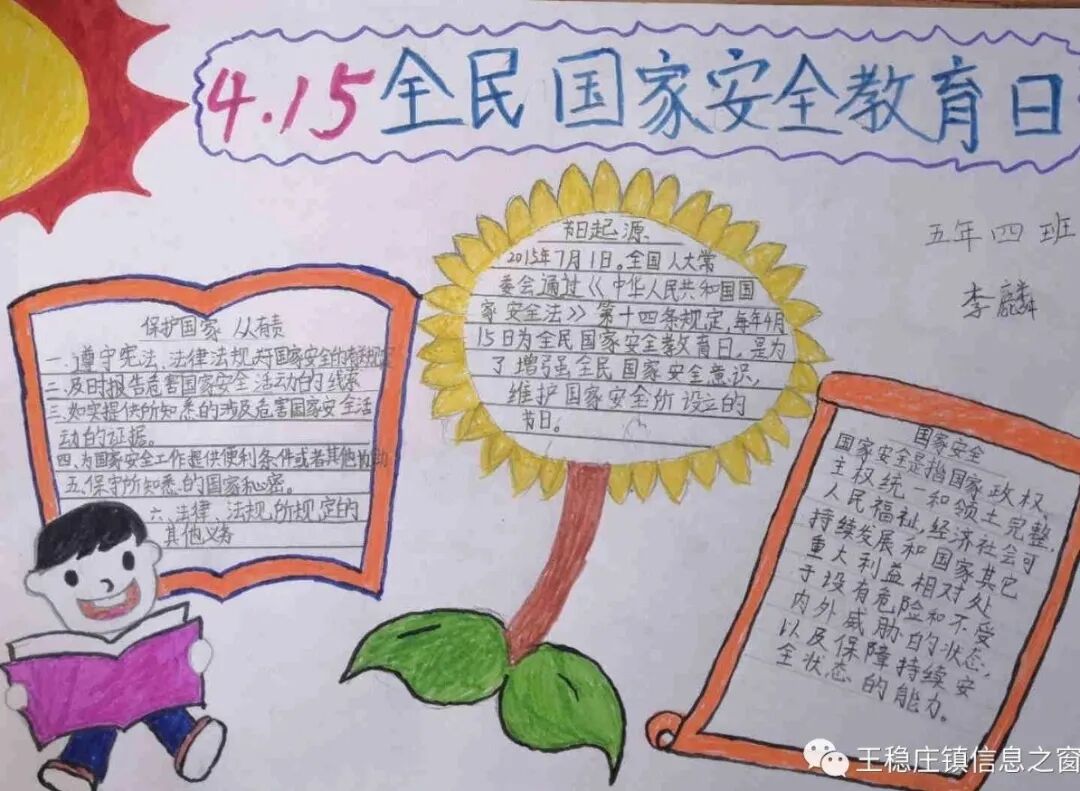 4.15全民国家安全教育日
五年四班
李麟
节日起源
2015年7月1日。全国人大常
委会通过《中华人民共和国国
家安全法》第十四条规定,每年4月
15日为全民国家安全教育日,是为
了增强全民国家安全意识,
维护国家安全所设立的
节日。
保护国家 从有责
一.遵守宪法、法律法规关于国家安全的有关规定
二.及时报告危害国家安全活动的线索
三.如实提供所知悉的涉及危害国家安全活
动的证据。
四.为国家安全工作提供便利条件或者其他协助
五.保守所知悉的国家秘密。
六.法律、法规所规定的
其他义务
国家安全
国家安全是指国家政权、
主权统一和领土完整,
人民福祉,经济社会可
持续发展和国家其它
重大利益相对处
于没有危险和不受
内外威胁的状态,
以及保障持续安
全状态的能力。
王稳庄镇信息之窗